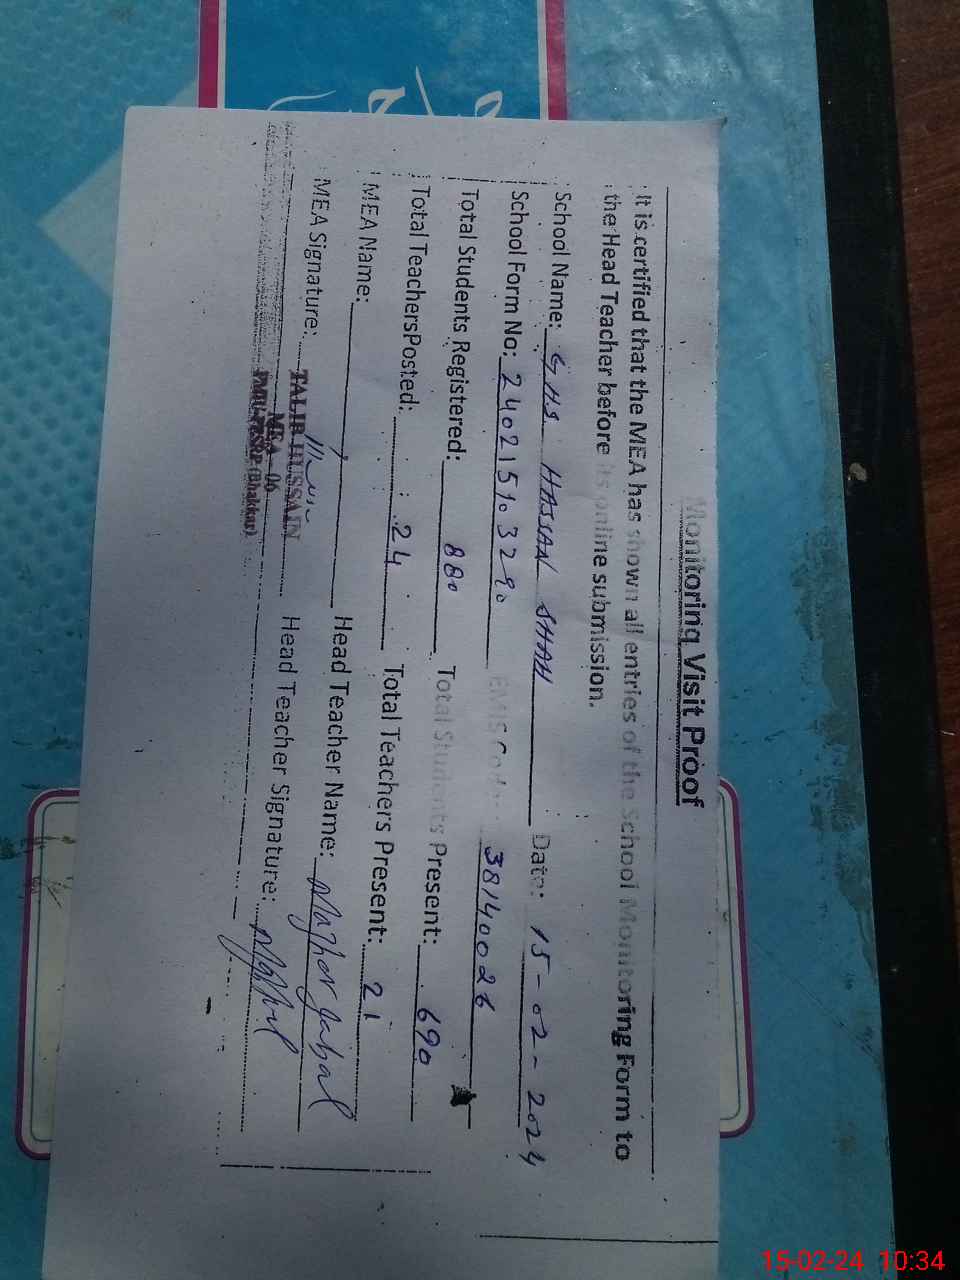 Monitoring Visit Proof
It is certified that the MEA has shown all entries of the School Monitoring Form to
the Head Teacher before its online submission.
School Name: GHS HASSAN SHAH Date: 15-02-2024
School Form No: 240215103290 EMIS Code: 38140026
Total Students Registered: 880 Total Students Present: 690
Total TeachersPosted: 24 Total Teachers Present: 21
MEA Name: Head Teacher Name: Mazher Iqbal
MEA Signature: Head Teacher Signature:
TALIB HUSSAIN
MEA - 06
(Bhakkar)
15-02-24 10:34